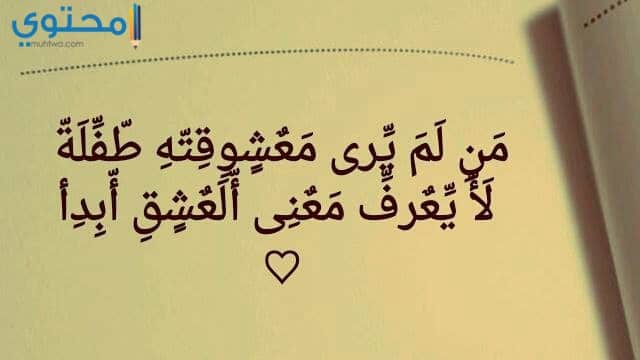 محتوي
muhtwa.com
مَن لَمَ يِّرى مَعٌشٍوقِتّهِ طّفِّلَةّ
لَأُ يِّعٌرفِّ مَعٌنِى أّلَعٌشٍقِ أّبِدِأ
♡